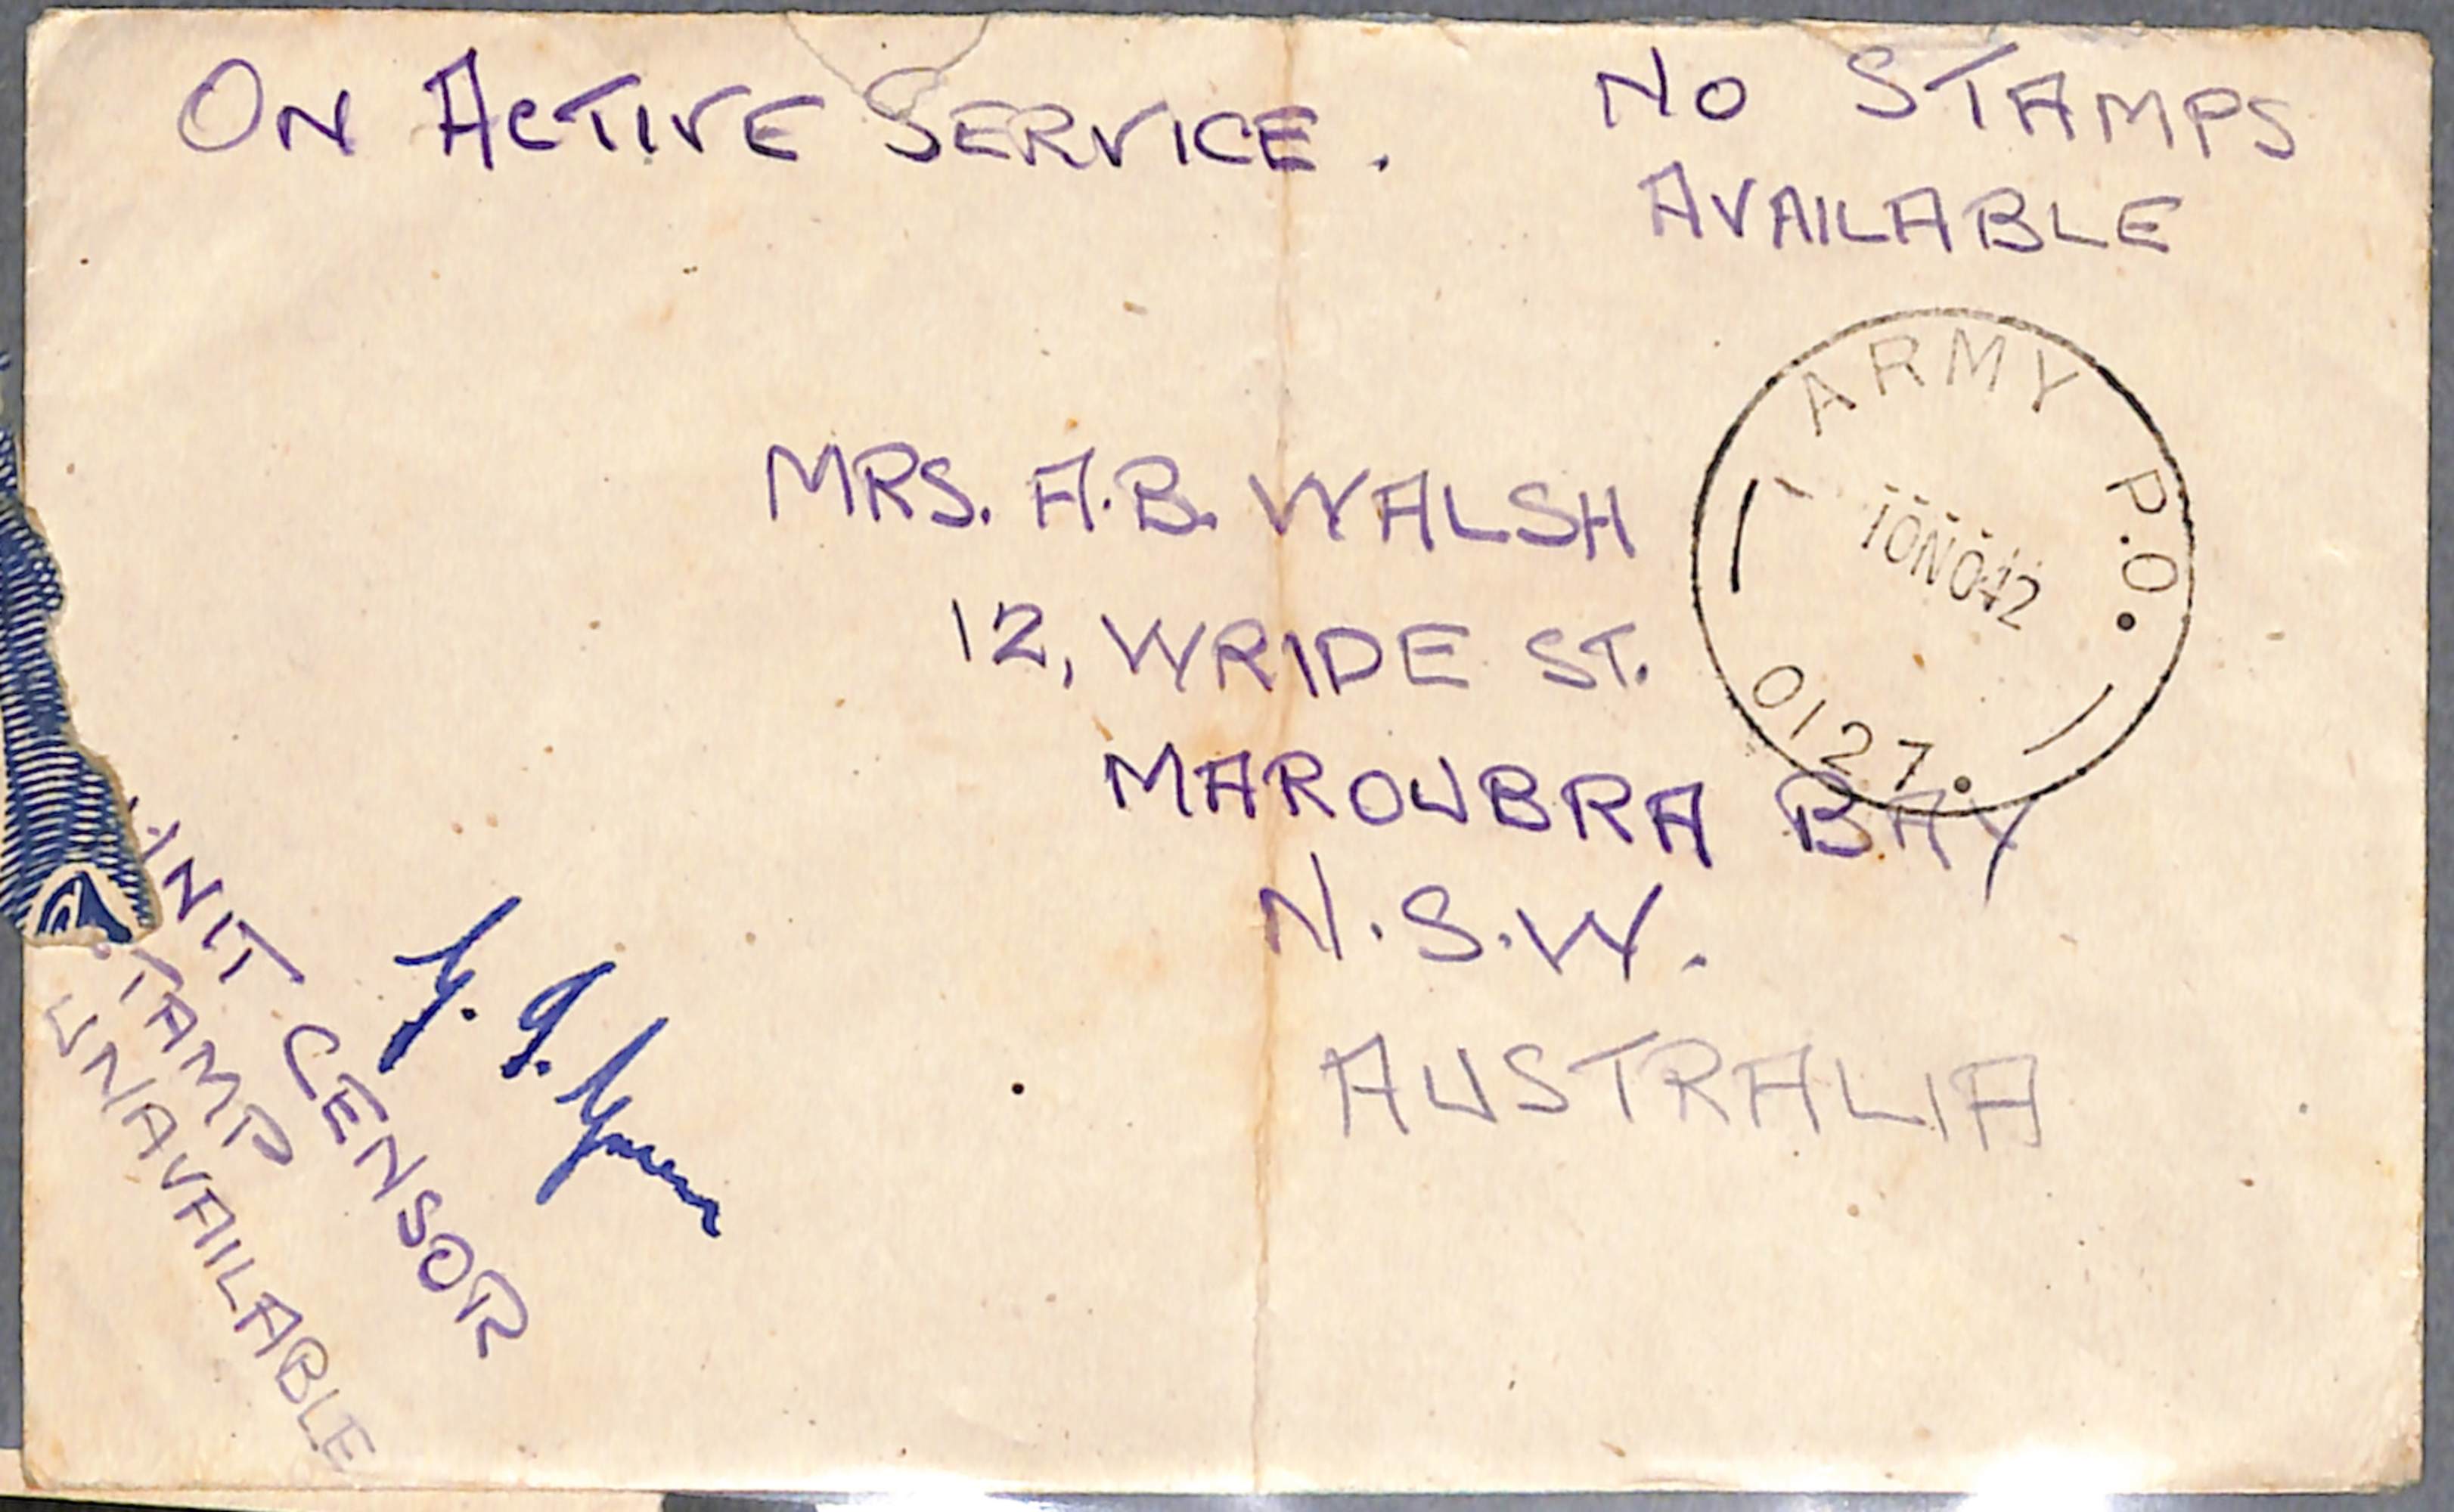 ON ACTIVE SERVICE.
NO STAMPS
AVAILABLE
ARMY P.O.
10NO42
0127.
MRS. A.B. WALSH
12, WRIDE ST.
MAROUBRA BAY
N.S.W.
AUSTRALIA
UNIT CENSOR
STAMP
UNAVAILABLE